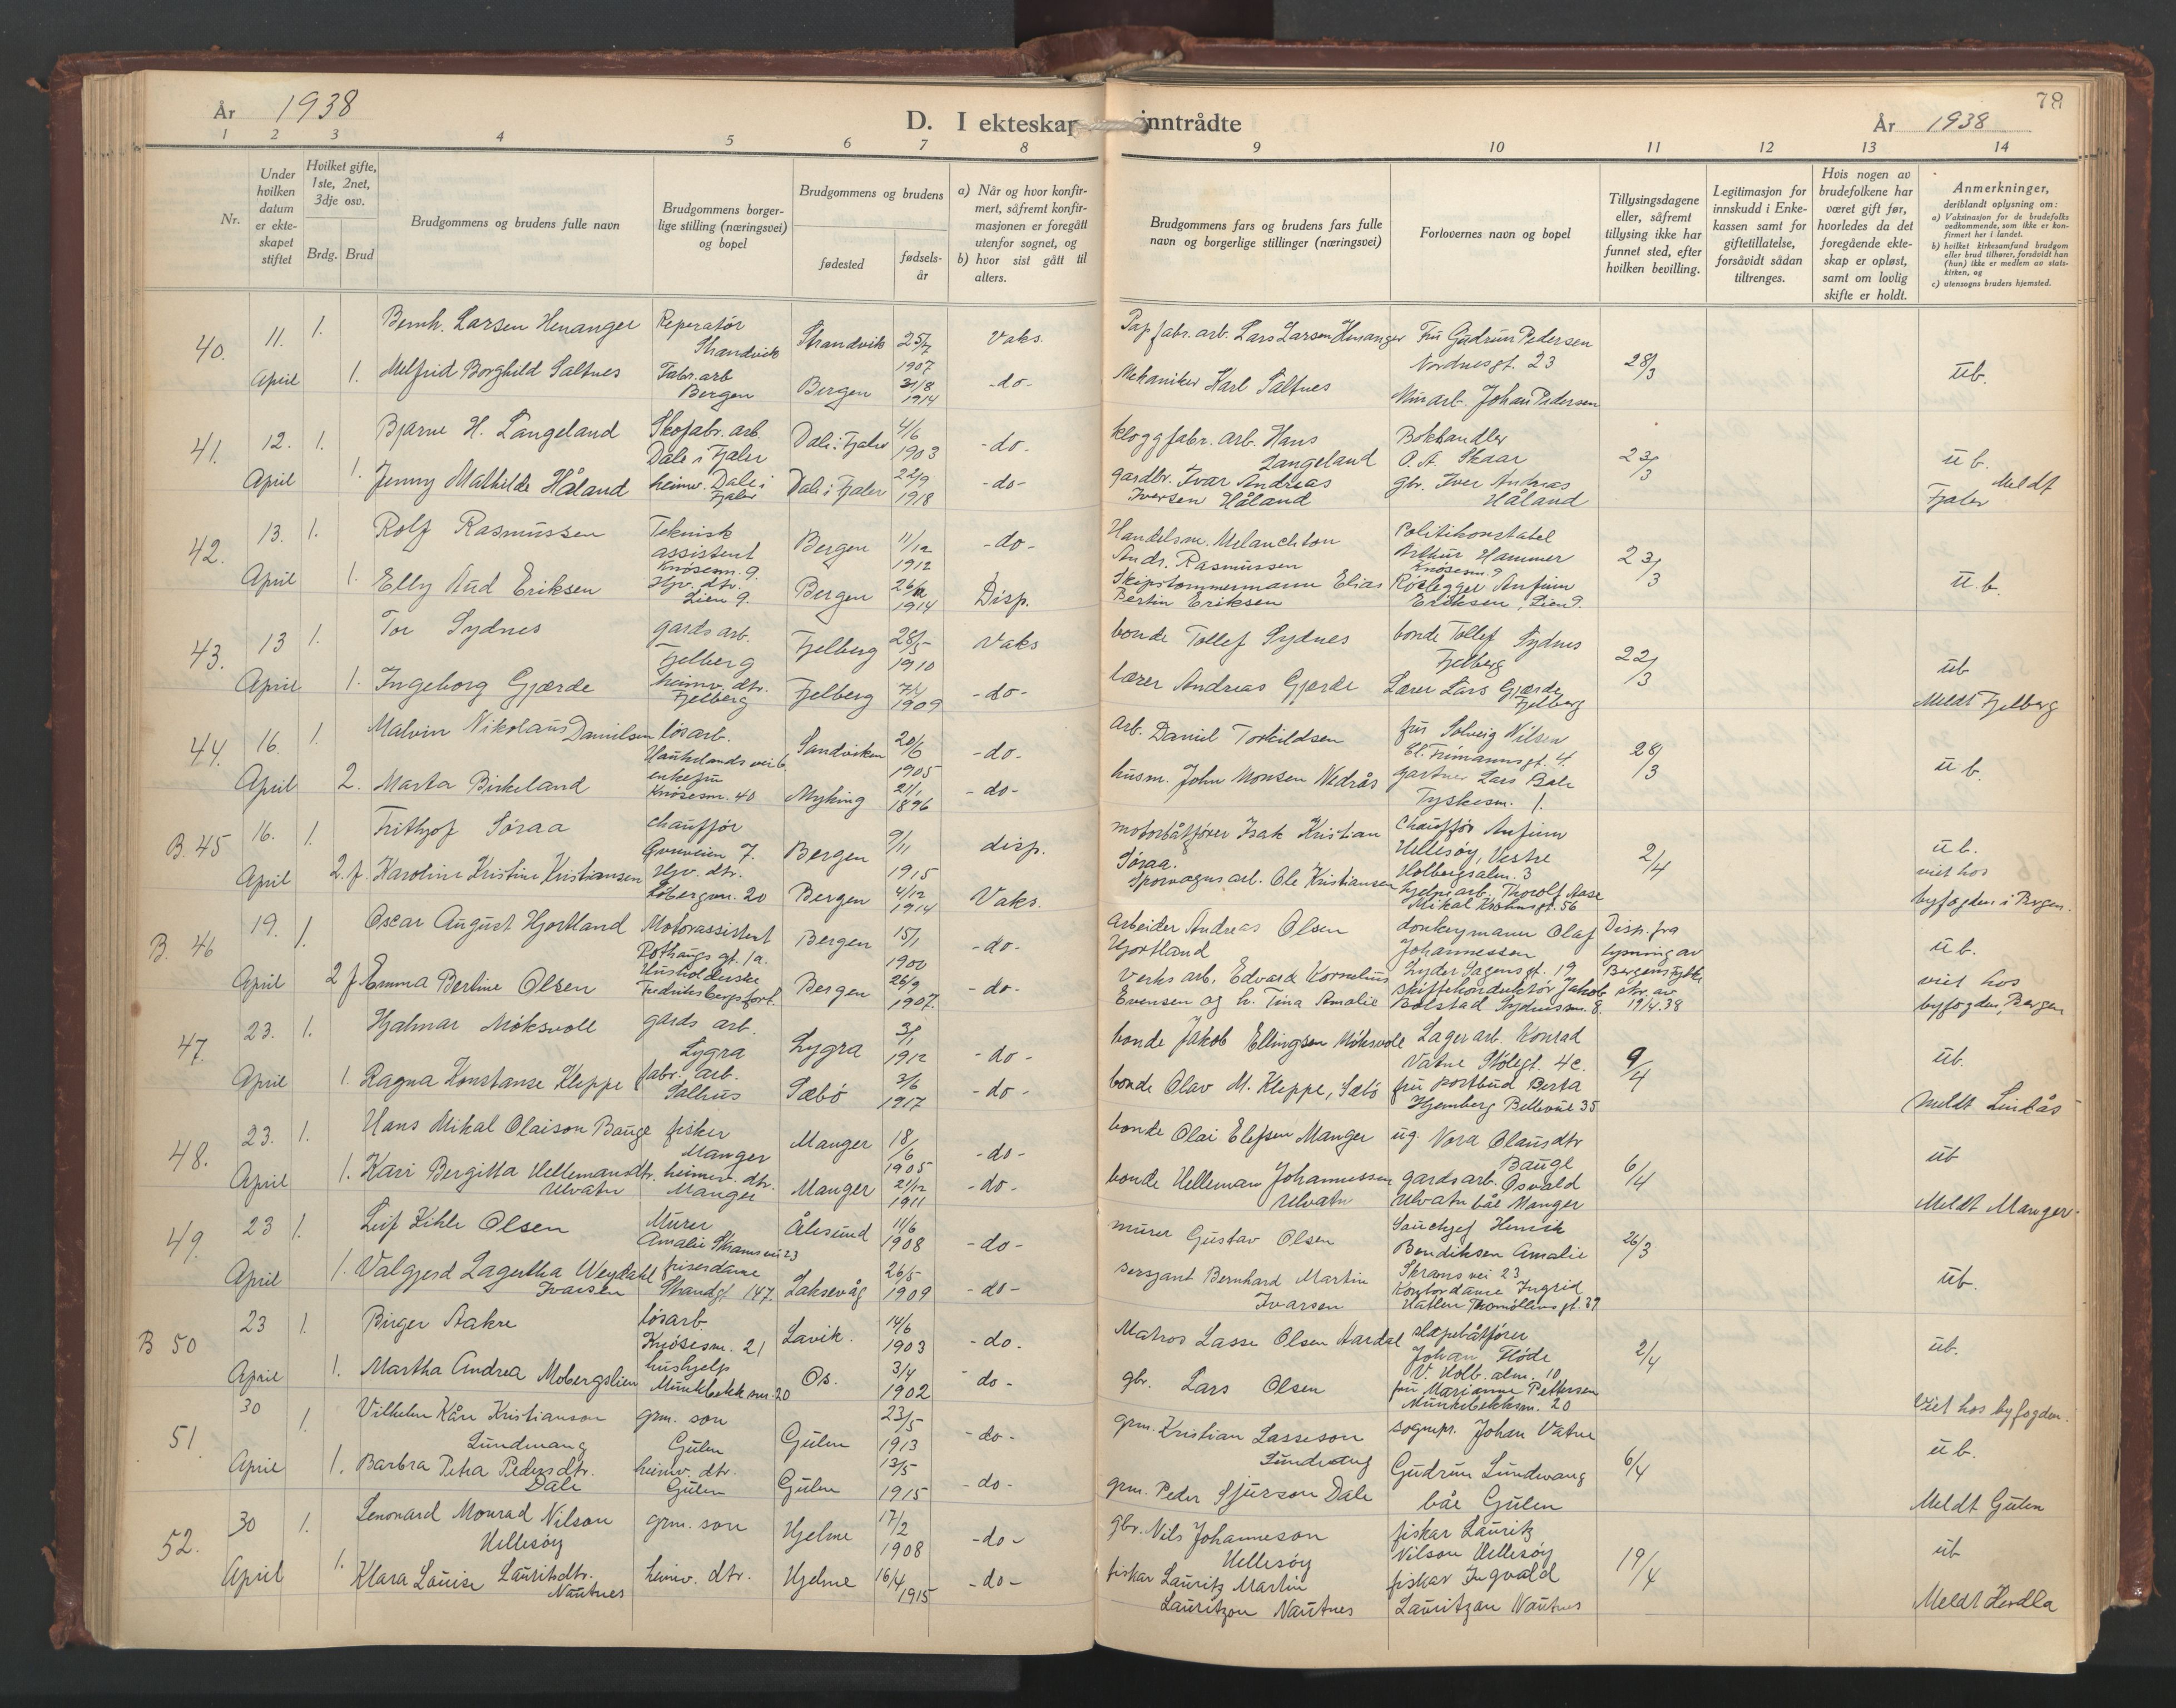 År 1938
D. I ekteskap inntrådte
78
År 1938
1 2 3 4 5 6 7 8 9 10 11 12 13 14
Nr.
Under hvilken datum er ekteskapet stiftet
Hvilket gifte, 1ste, 2net, 3dje osv.
Brdg. Brud
Brudgommens og brudens fulle navn
Brudgommens borgerlige stilling (næringsvei) og bopel
Brudgommens og brudens
fødested
fødselsår
a) Når og hvor konfirmert, såfremt konfirmasjonen er foregått utenfor sognet, og
b) hvor sist gått til alters.
Brudgommens fars og brudens fars fulle navn og borgerlige stillinger (næringsvei)
Forlovernes navn og bopel
Tillysingsdagene eller, såfremt tillysing ikke har funnet sted, efter hvilken bevilling.
Legitimasjon for innskudd i Enkekassen samt for giftetillatelse, forsåvidt sådan tiltrenges.
Hvis nogen av brudefolkene har været gift før, hvorledes da det foregående ekteskap er opløst, samt om lovlig skifte er holdt.
Anmerkninger, deriblandt oplysning om:
a) Vaksinasjon for de brudefolks vedkommende, som ikke er konfirmert her i landet.
b) hvilket kirkesamfund brudgom eller brud tilhører, forsåvidt han (hun) ikke er medlem av statskirken, og
c) utensogns bruders hjemsted.
40. 11. 1. Bernh. Larsen Henanger Reperatør Strandvik Strandvik 25/7 1907 Vaks. Pap fabr. arb. Lars Larsen Henanger Fru Gudrun Pedersen Nordnesgt. 23 28/3 ub.
April 1. Melfrid Borghild Saltnes Fabr. arb Bergen Bergen 31/8 1914 -do- Mekaniker Karl Saltnes Murarb. Johan Pedersen
41. 12. 1. Bjarne H. Langeland Skofabr. arb. Dale i Fjaler Dale i Fjaler 4/6 1903 -do- kloggfabr. arb. Hans Langeland Bokhandler O. A. Skaar 23/3 ub.
April 1. Jenny Mathilde Håland heimv. Dale i Fjaler Dale i Fjaler 22/9 1918 -do- gardbr. Ivar Andreas Iversen Håland gbr. Iver Andreas Håland Meldt Fjaler
42. 13. 1. Rolf Rasmussen Teknisk assistent Knøsesm. 9. Bergen 11/12 1912 -do- Handelsm. Melanchton Andr. Rasmussen Politikonstabel Arthur Hammer Knøsesm. 9 23/3 u.b.
April 1. Elly Aud Eriksen Hjv. dtr. Lien 9. Bergen 1914 Disp. Skipstømmermann Elias Bertin Eriksen Rørlegger Anfinn Eriksen, Lien 9.
43. 13 1. Tor Sydnes gardsarb. Fjelberg Fjelberg 28/5 1910 Vaks bonde Tollef Sydnes bonde Tollef Sydnes Fjelberg 22/3 ub
April 1. Ingeborg Gjærde heimv. dtr. Fjelberg Fjelberg 1909 -do- lærer Andreas Gjerde Lærer Lars Gjærde Fjelberg Meldt Fjelberg
44. 16. 1. Malvin Nikolaus Danielsen løsarb. Haukelandsvei 6. Sandviken 20/6 1905 -do- arb. Daniel Torkildsen fru Solveig Nilsen Cl. Frimannsgt. 4. 28/3 ub.
April 2. Marta Birkeland enkefru Knøsesm. 40 Myking 21/1 1896 -do- husm. John Monsen Nedrås gartner Lars Bale Tyskesm. 1.
B. 45 16. 1. Frithjof Søraa chauffør 7. Bergen 9/11 1915 disp. motorbåtfører Isak Kristian Søraa. Chauffør Anfinn Hellesøy, Vestre Holbergsalm. 3 2/4 ub. viet hos
April 2. f. Karoline Kristine Kristiansen Hjv. dtr. Løbergsm. 20 Bergen 4/12 1914 Vaks. Sporvogns arb. Ole Kristiansen hjelpearb. Thorolf Aase Mikal Krohnsgt. 56 byfogden i Bergen.
B. 46 19. 1. Oscar August Hjortland Motorassistent Rothaugs gt. 1a. Bergen 15/1 1900 -do- Arbeider Andreas Olsen Hjortland donkeymann Olaf Johannessen Lyder Sagensgt. 19 Disp. fra lysning av Bergens Fylke ub.
April 2 f Emma Bertine Olsen Husholderske Fredriksbergs fort. Bergen 26/9 1907. -do- Verks arb. Edvard Kornelius Evensen og h. Tina Amalie skiftekonduktør Jakob Bolstad Sydnessm. 8. skr. av 19/4.38 viet hos byfogden, Bergen
47. 23. 1. Hjalmar Møksvoll gards arb. Lygra Lygra 3/1 1912 -do- bonde Jakob Ellingsen Møksvoll Lagerarb. Konrad Vatne Stølegt. 4c. 9/4 ub.
April 1. Ragna Konstanse Kleppe fabr. arb. Salhus Sæbø 3/6 1917 -do- bonde Olav M. Kleppe, Sæbø fru postbud Berta Hjemberg Bellevue 35 Meldt Lindås
48. 23. 1. Hans Mikal Olaison Bauge fisker Manger Manger 18/6 1905 -do- bonde Olai Elefsen Manger ug. Nora Olausdtr Bauge 6/4 ub
April 1. Kari Bergitta Hellemansdtr. Ulvatn heimv. dtr. Manger Manger 21/12 1911 -do- bonde Helleman Johannessen Ulvatn gardsarb. Osvald Ulvatn båe Manger Meldt Manger.
49. 23 1. Leif Kihle Olsen Murer Amalie Skrams vei 23 Ålesund 11/6 1908 -do- murer Gustav Olsen Henrik Bendiksen Amalie Skrams vei 23 26/3
April 1. Valgjerd Lagertha Weydahl Ivarsen friserdame Strandgt 147. Laksevåg 26/5 1909 -do- sersjant Bernhard Martin Ivarsen Kontordame Ingrid Hatlen Thormøllens gt. 39 ub.
B 50 23 1. Birger Aakre løsarb. Knøsesm. 21 Lavik. 14/6 1903 -do. Matros Lasse Olsen Aardal slepebåtfører Johan Fløde V. Holb. alm. 10 2/4 ub.
April 1. Martha Andrea Mobergslien hushjelp Munkbekk sm. 20 Os. 3/4 1902 -do- gbr. Lars Olsen fru Marianne Pettersen Munkebekksm. 20 Viet hos byfogden.
51. 30 1. Vilhelm Kåre Kristianson Sundvang grm. son Gulen Gulen 23/5 1913 -do- grm. Kristian Lasseson sognepr. Johan Vatne 6/4 u b.
April 1. Barbra Petra Pedersdtr. Dale heimv. dtr. Gulen Gulen 13/5 1915 -do- grm. Peder Sjurson Dale Gudrun Sundvang båe Gulen Meldt Gulen
52. 30 1. Lenonard Monrad Nilson Hellesøy grm. son Hjelme 17/2 1908 -do- gbr. Nils Johanneson Hellesøy fiskar Lauritz Nilson Hellesøy 19/4 ub
April 1. Klara Louise Lauritsdtr. Nautnes heimv. dtr. Hjelme 16/4 1915 -do- fiskar Lauritz Martin Lauritzon Nautnes fiskar Ingvald Lauritzon Nautnes Meldt Herdla